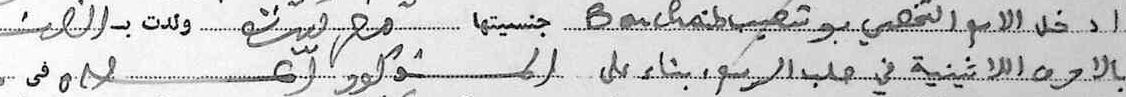 ادخل الاسم الشخصي بوشعيب Bouchaib جنسيتها مغربية ولدت بـ
بالاحرف اللاتينية في صلب الرسم، بناء على المذكور أعلاه في